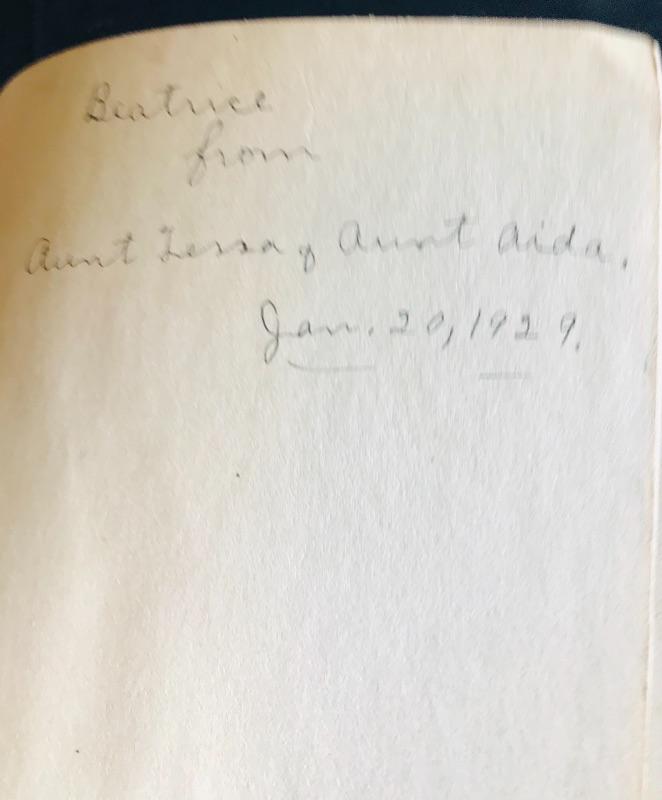 Beatrice
from
Aunt Tessa & Aunt Aida.
Jan. 20, 1929.